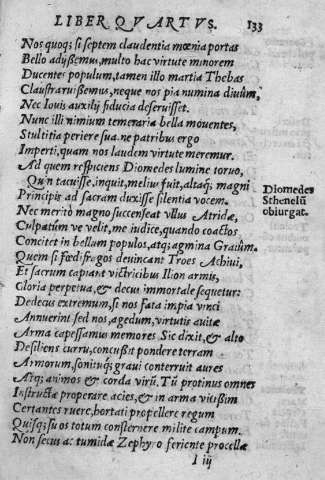 LIBER QVARTVS.
133
Nos quoq; si septem claudentia mœnia portas
Bello adyssemus, multo hac virtute minorem
Ducentes populum, tamen illo martia Thebas
Claustra ruissemus, neque nos pia numina diuûm,
Nec Iouis auxilij fiducia deseruisset.
Nunc illi nimium temeraria bella mouentes,
Stultitia periere sua. ne patribus ergo
Imperti, quam nos laudem virtute meremur.
Ad quem respiciens Diomedes lumine toruo,
Quin tacuisse, inquit, melius fuit, altaq; magni
Principis ad sacram duxisse silentia vocem.
Diomedes
Sthenelũ
obiurgat.
Nec merito magno succenseat vllus Atridæ,
Culpatum ve velit, me iudice, quando coactos
Concitet in bellum populos, atq; agmina Graiûm.
Quem si fœdifragos deuincant Troes Achiui,
Et sacrum capiant victricibus Ilion armis,
Gloria perpetua, & decus immortale sequetur:
Dedecus extremum, si nos fata impia vinci
Annuerint sed nos, agedum, virtutis auitæ
Arma capessamus memores. Sic dixit, & alto
Desiliens curru, concussit pondere terram
Armorum, sonitusq; graui conterruit aures
Atq; animos & corda virû. Tũ protinus omnes
Instructæ properare acies, & in arma vicissim
Certantes ruere, hortati propellere regum
Quisq; suos totum consternere milite campum.
Non secus ac tumidæ Zephyro feriente procellæ
I iij